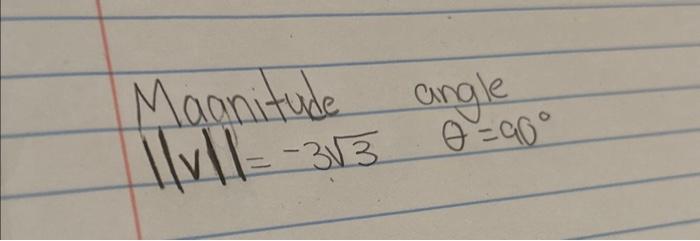 Magnitude angle
||v|| = -3√3 θ = 90°